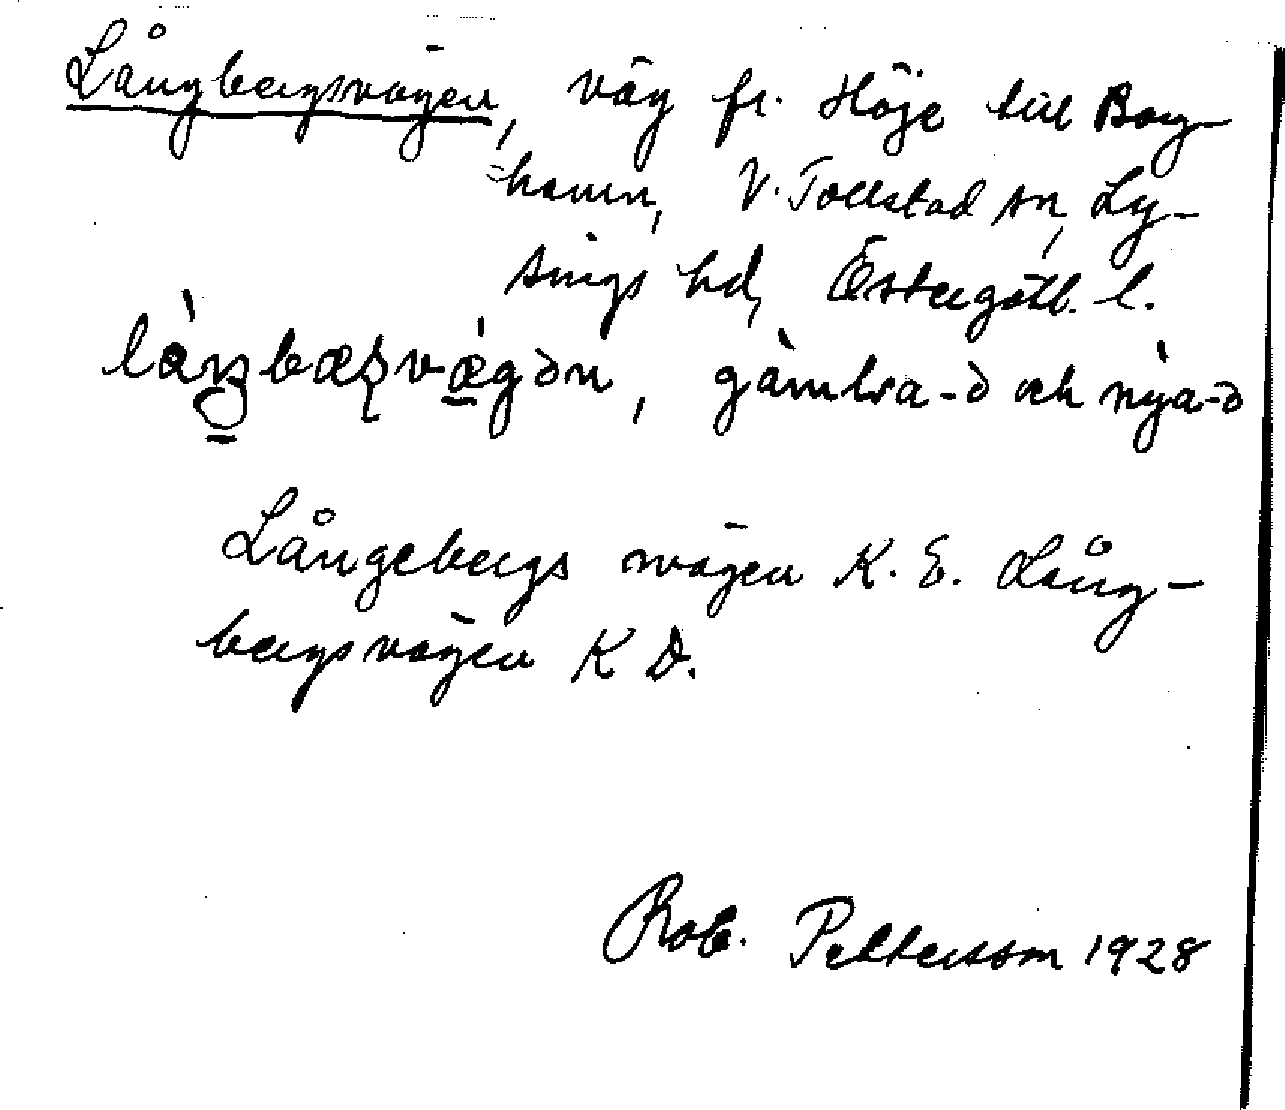 Långbergsvägen, väg fr. Höje till Borg-
hamn, V. Tollstad sn, Ly-
sings hd, Östergötl. l.
gàmbra-ə och nỳa-ə
Långebergs wägen K. E. Lång-
bergsvägen K D.
Rob. Pettersson 1928